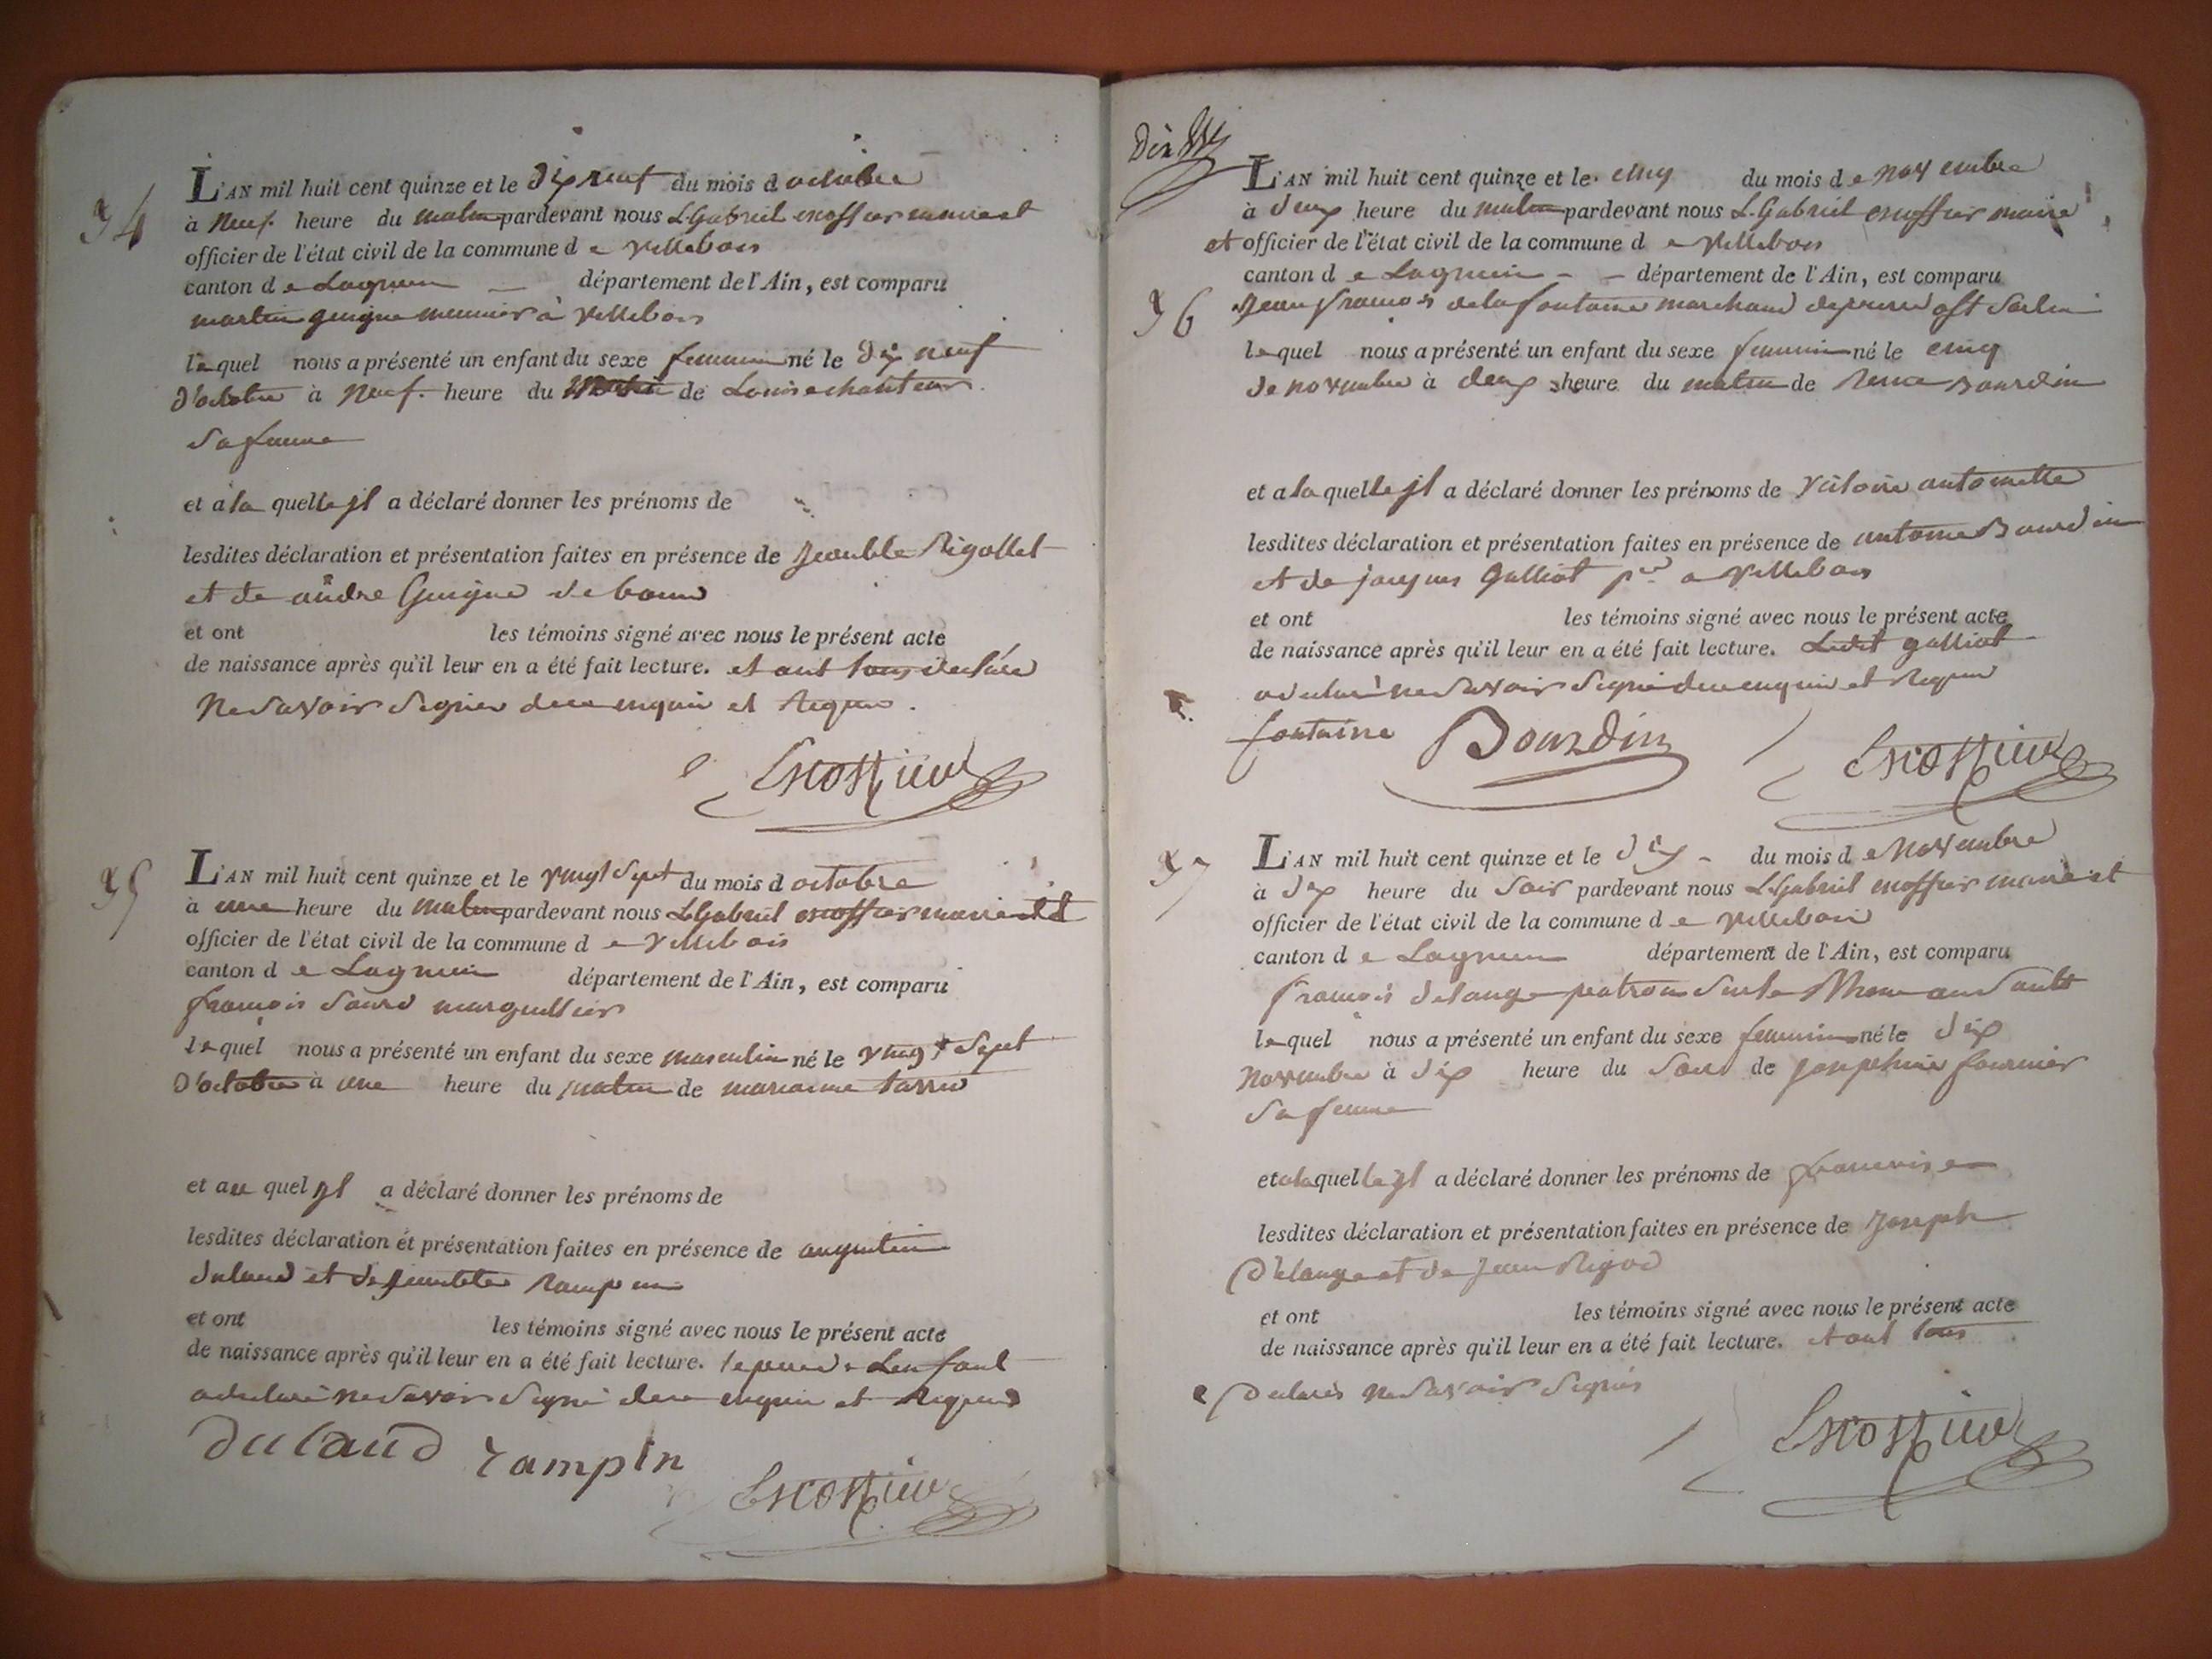 34
L'AN mil huit cent quinze et le dix neuf du mois d octobre
à Neuf heure du matin pardevant nous L. Gabriel escoffier maire et
officier de l'état civil de la commune d e villebois
canton d e Lagnieu département de l'Ain, est comparu
martin guigue meunier à villebois
lequel nous a présenté un enfant du sexe feminin né le dix neuf
d'octobre à Neuf heure du matin de Louise chanteur
sa femme
et a la quelle jl a déclaré donner les prénoms de
lesdites déclaration et présentation faites en présence de Rigollet
et de andre Guigue de
et ont les témoins signé avec nous le présent acte
de naissance après qu'il leur en a été fait lecture. et ont tous declaré
Ne savoir signer de ce enquis et requis.
Escoffier
35
L'AN mil huit cent quinze et le vingt sept du mois d octobre
à une heure du matin pardevant nous L. Gabriel escoffier maire et
officier de l'état civil de la commune d e villebois
canton d e Lagnieu département de l'Ain, est comparu
françois marguillier
lequel nous a présenté un enfant du sexe masculin né le vingt sept
d'octobre à une heure du matin de marianne
et au quel jl a déclaré donner les prénoms de
lesdites déclaration et présentation faites en présence de augustin
dulaud et de rampin
et ont les témoins signé avec nous le présent acte
de naissance après qu'il leur en a été fait lecture. le pere de Lenfant
a declaré ne savoir signé de ce enquis et requis
dulaud rampin Escoffier
36
L'AN mil huit cent quinze et le cinq du mois d e novembre
à deux heure du matin pardevant nous L. Gabriel escoffier maire
et officier de l'état civil de la commune d e villebois
canton d e Lagnieu département de l'Ain, est comparu
jean françois delafontaine marchand
lequel nous a présenté un enfant du sexe feminin né le cinq
de novembre à deux heure du matin de Bourdin
et a la quelle jl a déclaré donner les prénoms de victoire antoinette
lesdites déclaration et présentation faites en présence de antoine Bourdin
et de jacques Galliot a villebois
et ont les témoins signé avec nous le présent acte
de naissance après qu'il leur en a été fait lecture. Ledit galliot
a declaré ne savoir signé de ce enquis et requis
fontaine Bourdin Escoffier
37
L'AN mil huit cent quinze et le dix du mois d e Novembre
à dix heure du soir pardevant nous L. Gabriel escoffier maire et
officier de l'état civil de la commune d e villebois
canton d e Lagnieu département de l'Ain, est comparu
françois delange patron sur le Rhone au sault
lequel nous a présenté un enfant du sexe feminin né le dix
novembre à dix heure du soir de josephine fournier
sa femme
et a la quelle jl a déclaré donner les prénoms de francoise
lesdites déclaration et présentation faites en présence de joseph
delange et de jean Rigod
et ont les témoins signé avec nous le présent acte
de naissance après qu'il leur en a été fait lecture. et ont tous
declarés ne savoir signés
Escoffier